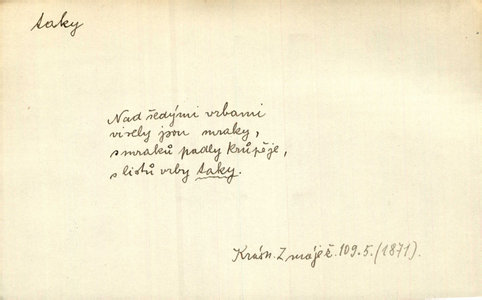 taky
Nad šedými vrbami
visely jsou mraky,
s mraků padly krůpěje,
s listů vrby taky.
Krásn. Z máje č. 109.5. (1871).